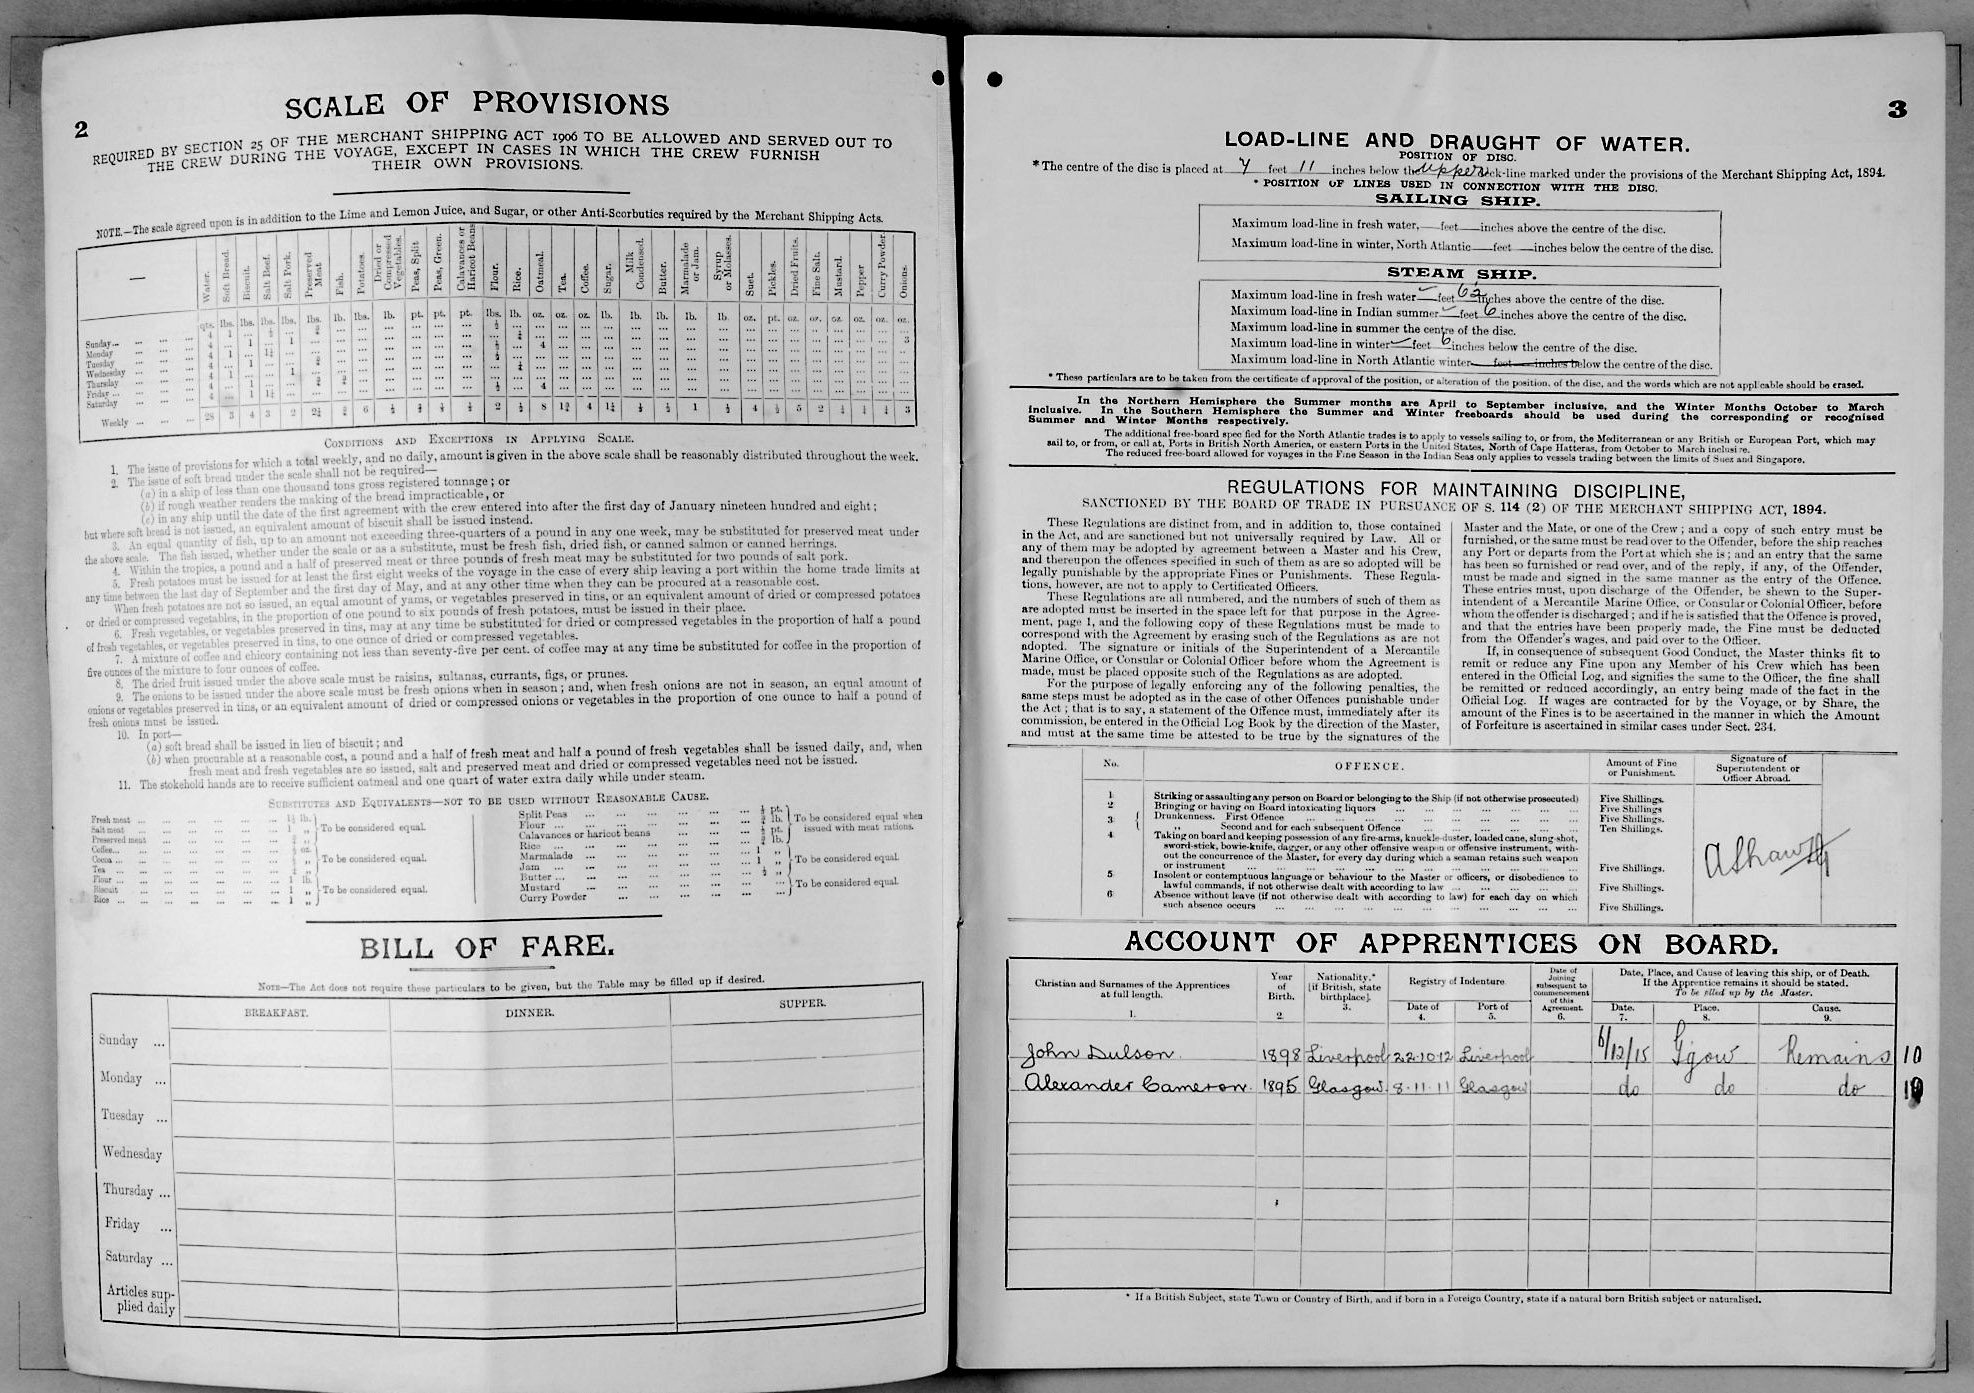 2
SCALE OF PROVISIONS
REQUIRED BY SECTION 25 OF THE MERCHANT SHIPPING ACT 1906 TO BE ALLOWED AND SERVED OUT TO
THE CREW DURING THE VOYAGE, EXCEPT IN CASES IN WHICH THE CREW FURNISH
THEIR OWN PROVISIONS.
NOTE.—The scale agreed upon is in addition to the Lime and Lemon Juice, and Sugar, or other Anti-Scorbutics required by the Merchant Shipping Acts.
— Water. Soft Bread. Biscuit. Salt Beef. Salt Pork. Preserved Meat Fish. Potatoes. Dried or Compressed Vegetables. Peas, Split Peas, Green. Calavances or Haricot Beans Flour. Rice. Oatmeal. Tea. Coffee. Sugar. Milk Condensed. Butter. Marmalade or Jam. Syrup or Molasses. Suet. Pickles. Dried Fruits. Fine Salt. Mustard. Pepper Curry Powder. Onions.
qts. lbs. lbs. lbs. lbs. lbs. lbs. lbs. lb. pt. pt. pt. lbs. lbs. oz. oz. oz. lb. lb. lb. lb. lb. oz. pt. oz. oz. oz. oz. oz. oz.
Sunday...
Monday
Tuesday
Wednesday
Thursday
Friday ...
Saturday
Weekly ... 28 3 4 3 2 2¼ ¾ 6 ½ ⅔ ⅓ ⅓ 2 ½ 8 1¾ 4 1¼ ⅓ ½ 1 ½ 4 ½ 5 2 ¼ ¼ ¼ 3
CONDITIONS AND EXCEPTIONS IN APPLYING SCALE.
1. The issue of provisions for which a total weekly, and no daily, amount is given in the above scale shall be reasonably distributed throughout the week.
2. The issue of soft bread under the scale shall not be required—
(a) in a ship of less than one thousand tons gross registered tonnage; or
(b) if rough weather renders the making of the bread impracticable, or
(c) in any ship until the date of the first agreement with the crew entered into after the first day of January nineteen hundred and eight;
but where soft bread is not issued, an equivalent amount of biscuit shall be issued instead.
3. An equal quantity of fish, up to an amount not exceeding three-quarters of a pound in any one week, may be substituted for preserved meat under
the above scale. The fish issued, whether under the scale or as a substitute, must be fresh fish, dried fish, or canned salmon or canned herrings.
4. Within the tropics, a pound and a half of preserved meat or three pounds of fresh meat may be substituted for two pounds of salt pork.
5. Fresh potatoes must be issued for at least the first eight weeks of the voyage in the case of every ship leaving a port within the home trade limits at
any time between the last day of September and the first day of May, and at any other time when they can be procured at a reasonable cost.
When fresh potatoes are not so issued, an equal amount of yams, or vegetables preserved in tins, or an equivalent amount of dried or compressed potatoes
or dried or compressed vegetables, in the proportion of one pound to six pounds of fresh potatoes, must be issued in their place.
6. Fresh vegetables, or vegetables preserved in tins, may at any time be substituted for dried or compressed vegetables in the proportion of half a pound
of fresh vegetables, or vegetables preserved in tins, to one ounce of dried or compressed vegetables.
7. A mixture of coffee and chicory containing not less than seventy-five per cent. of coffee may at any time be substituted for coffee in the proportion of
five ounces of the mixture to four ounces of coffee.
8. The dried fruit issued under the above scale must be raisins, sultanas, currants, figs, or prunes.
9. The onions to be issued under the above scale must be fresh onions when in season; and, when fresh onions are not in season, an equal amount of
onions or vegetables preserved in tins, or an equivalent amount of dried or compressed onions or vegetables in the proportion of one ounce to half a pound of
fresh onions must be issued.
10. In port—
(a) soft bread shall be issued in lieu of biscuit; and
(b) when procurable at a reasonable cost, a pound and a half of fresh meat and half a pound of fresh vegetables shall be issued daily, and, when
fresh meat and fresh vegetables are so issued, salt and preserved meat and dried or compressed vegetables need not be issued.
11. The stokehold hands are to receive sufficient oatmeal and one quart of water extra daily while under steam.
SUBSTITUTES AND EQUIVALENTS—NOT TO BE USED WITHOUT REASONABLE CAUSE.
Fresh meat ... 1½ lb.
Salt meat ... 1 „ To be considered equal.
Preserved meat
Coffee...
Cocoa ... To be considered equal.
Tea ...
Flour ... 1 lb.
Biscuit 1 „ To be considered equal.
Rice ... 1 „
Split Peas ... To be considered equal when
Flour ... issued with meat rations.
Calavances or haricot beans
Rice ...
Marmalade ... 1 „
Jam ... 1 „ To be considered equal.
Butter ... ½ „
Mustard ... To be considered equal.
Curry Powder
BILL OF FARE.
NOTE—The Act does not require these particulars to be given, but the Table may be filled up if desired.
BREAKFAST. DINNER. SUPPER.
Sunday ...
Monday ...
Tuesday ...
Wednesday
Thursday ...
Friday ...
Saturday ...
Articles sup-
plied daily
3
LOAD-LINE AND DRAUGHT OF WATER.
POSITION OF DISC.
*The centre of the disc is placed at 7 feet 11 inches below the upper deck-line marked under the provisions of the Merchant Shipping Act, 1894.
* POSITION OF LINES USED IN CONNECTION WITH THE DISC.
SAILING SHIP.
Maximum load-line in fresh water, — feet — inches above the centre of the disc.
Maximum load-line in winter, North Atlantic — feet — inches below the centre of the disc.
STEAM SHIP.
Maximum load-line in fresh water — feet 6½ inches above the centre of the disc.
Maximum load-line in Indian summer — feet 6 inches above the centre of the disc.
Maximum load-line in summer the centre of the disc.
Maximum load-line in winter — feet 6 inches below the centre of the disc.
Maximum load-line in North Atlantic winter — feet — inches below the centre of the disc.
* These particulars are to be taken from the certificate of approval of the position, or alteration of the position, of the disc, and the words which are not applicable should be erased.
In the Northern Hemisphere the Summer months are April to September inclusive, and the Winter Months October to March
inclusive. In the Southern Hemisphere the Summer and Winter freeboards should be used during the corresponding or recognised
Summer and Winter Months respectively.
The additional free-board specified for the North Atlantic trades is to apply to vessels sailing to, or from, the Mediterranean or any British or European Port, which may
sail to, or from, or call at, Ports in British North America, or eastern Ports in the United States, North of Cape Hatteras, from October to March inclusive.
The reduced free-board allowed for voyages in the Fine Season in the Indian Seas only applies to vessels trading between the limits of Suez and Singapore.
REGULATIONS FOR MAINTAINING DISCIPLINE,
SANCTIONED BY THE BOARD OF TRADE IN PURSUANCE OF S. 114 (2) OF THE MERCHANT SHIPPING ACT, 1894.
These Regulations are distinct from, and in addition to, those contained
in the Act, and are sanctioned but not universally required by Law. All or
any of them may be adopted by agreement between a Master and his Crew,
and thereupon the offences specified in such of them as are so adopted will be
legally punishable by the appropriate Fines or Punishments. These Regula-
tions, however, are not to apply to Certificated Officers.
These Regulations are all numbered, and the numbers of such of them as
are adopted must be inserted in the space left for that purpose in the Agree-
ment, page 1, and the following copy of these Regulations must be made to
correspond with the Agreement by erasing such of the Regulations as are not
adopted. The signature or initials of the Superintendent of a Mercantile
Marine Office, or Consular or Colonial Officer before whom the Agreement is
made, must be placed opposite such of the Regulations as are adopted.
For the purpose of legally enforcing any of the following penalties, the
same steps must be adopted as in the case of other Offences punishable under
the Act; that is to say, a statement of the Offence must, immediately after its
commission, be entered in the Official Log Book by the direction of the Master,
and must at the same time be attested to be true by the signatures of the
Master and the Mate, or one of the Crew; and a copy of such entry must be
furnished, or the same must be read over to the Offender, before the ship reaches
any Port or departs from the Port at which she is; and an entry that the same
has been so furnished or read over, and of the reply, if any, of the Offender,
must be made and signed in the same manner as the entry of the Offence.
These entries must, upon discharge of the Offender, be shewn to the Super-
intendent of a Mercantile Marine Office, or Consular or Colonial Officer, before
whom the offender is discharged; and if he is satisfied that the Offence is proved,
and that the entries have been properly made, the Fine must be deducted
from the Offender's wages, and paid over to the Officer.
If, in consequence of subsequent Good Conduct, the Master thinks fit to
remit or reduce any Fine upon any Member of his Crew which has been
entered in the Official Log, and signifies the same to the Officer, the fine shall
be remitted or reduced accordingly, an entry being made of the fact in the
Official Log. If wages are contracted for by the Voyage, or by Share, the
amount of the Fines is to be ascertained in the manner in which the Amount
of Forfeiture is ascertained in similar cases under Sect. 234.
No. OFFENCE. Amount of Fine or Punishment. Signature of Superintendent or Officer Abroad.
1 Striking or assaulting any person on Board or belonging to the Ship (if not otherwise prosecuted) Five Shillings.
2 Bringing or having on Board intoxicating liquors ... Five Shillings
3 Drunkenness. First Offence ... Five Shillings.
„ Second and for each subsequent Offence ... Ten Shillings.
4 Taking on board and keeping possession of any fire-arms, knuckle-duster, loaded cane, slung-shot,
sword-stick, bowie-knife, dagger, or any other offensive weapon or offensive instrument, with-
out the concurrence of the Master, for every day during which a seaman retains such weapon
or instrument ... Five Shillings.
5 Insolent or contemptuous language or behaviour to the Master or officers, or disobedience to
lawful commands, if not otherwise dealt with according to law ... Five Shillings.
6 Absence without leave (if not otherwise dealt with according to law) for each day on which
such absence occurs ... Five Shillings.
A Shaw
ACCOUNT OF APPRENTICES ON BOARD.
Christian and Surnames of the Apprentices at full length. 1. Year of Birth. 2. Nationality.* [if British, state birthplace]. 3. Registry of Indenture Date of 4. Port of 5. Date of Joining subsequent to commencement of this Agreement. 6. Date, Place, and Cause of leaving this ship, or of Death. If the Apprentice remains it should be stated. To be filled up by the Master. Date. 7. Place. 8. Cause. 9.
John Dulson 1898 Liverpool 22.10.12 Liverpool 6/12/15 G'gow Remains 10
Alexander Cameron 1895 Glasgow. 8.11.11 Glasgow do do do
* If a British Subject, state Town or Country of Birth, and if born in a Foreign Country, state if a natural born British subject or naturalised.